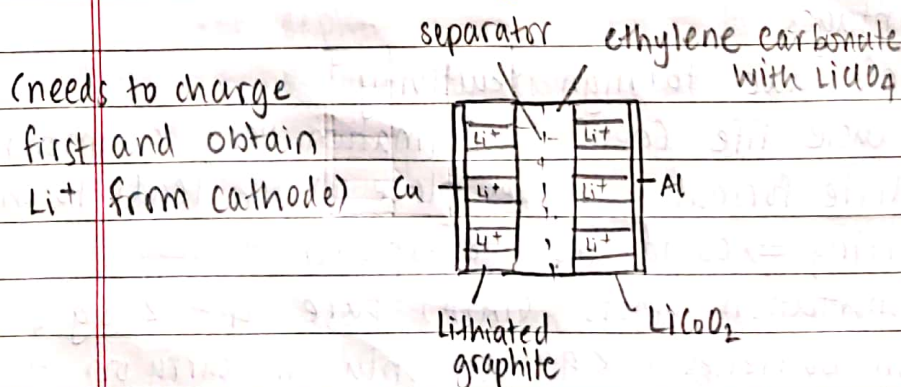 separator ethylene carbonate
with LiClO4
(needs to charge
first and obtain
Li+ from cathode)
Cu
Li+ Li+
Li+ Li+
Li+ Li+
Al
Lithiated
graphite
LiCoO2